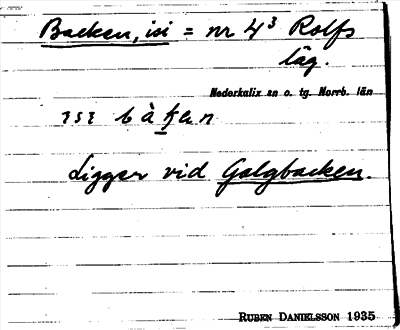 Backen, isi = nr 4³ Rolfs
läg.
Nederkalix sn o. tg. Norrb. län
ɪsɪ bàkan
Ligger vid Galgbacken.
RUBEN DANIELSSON 1935